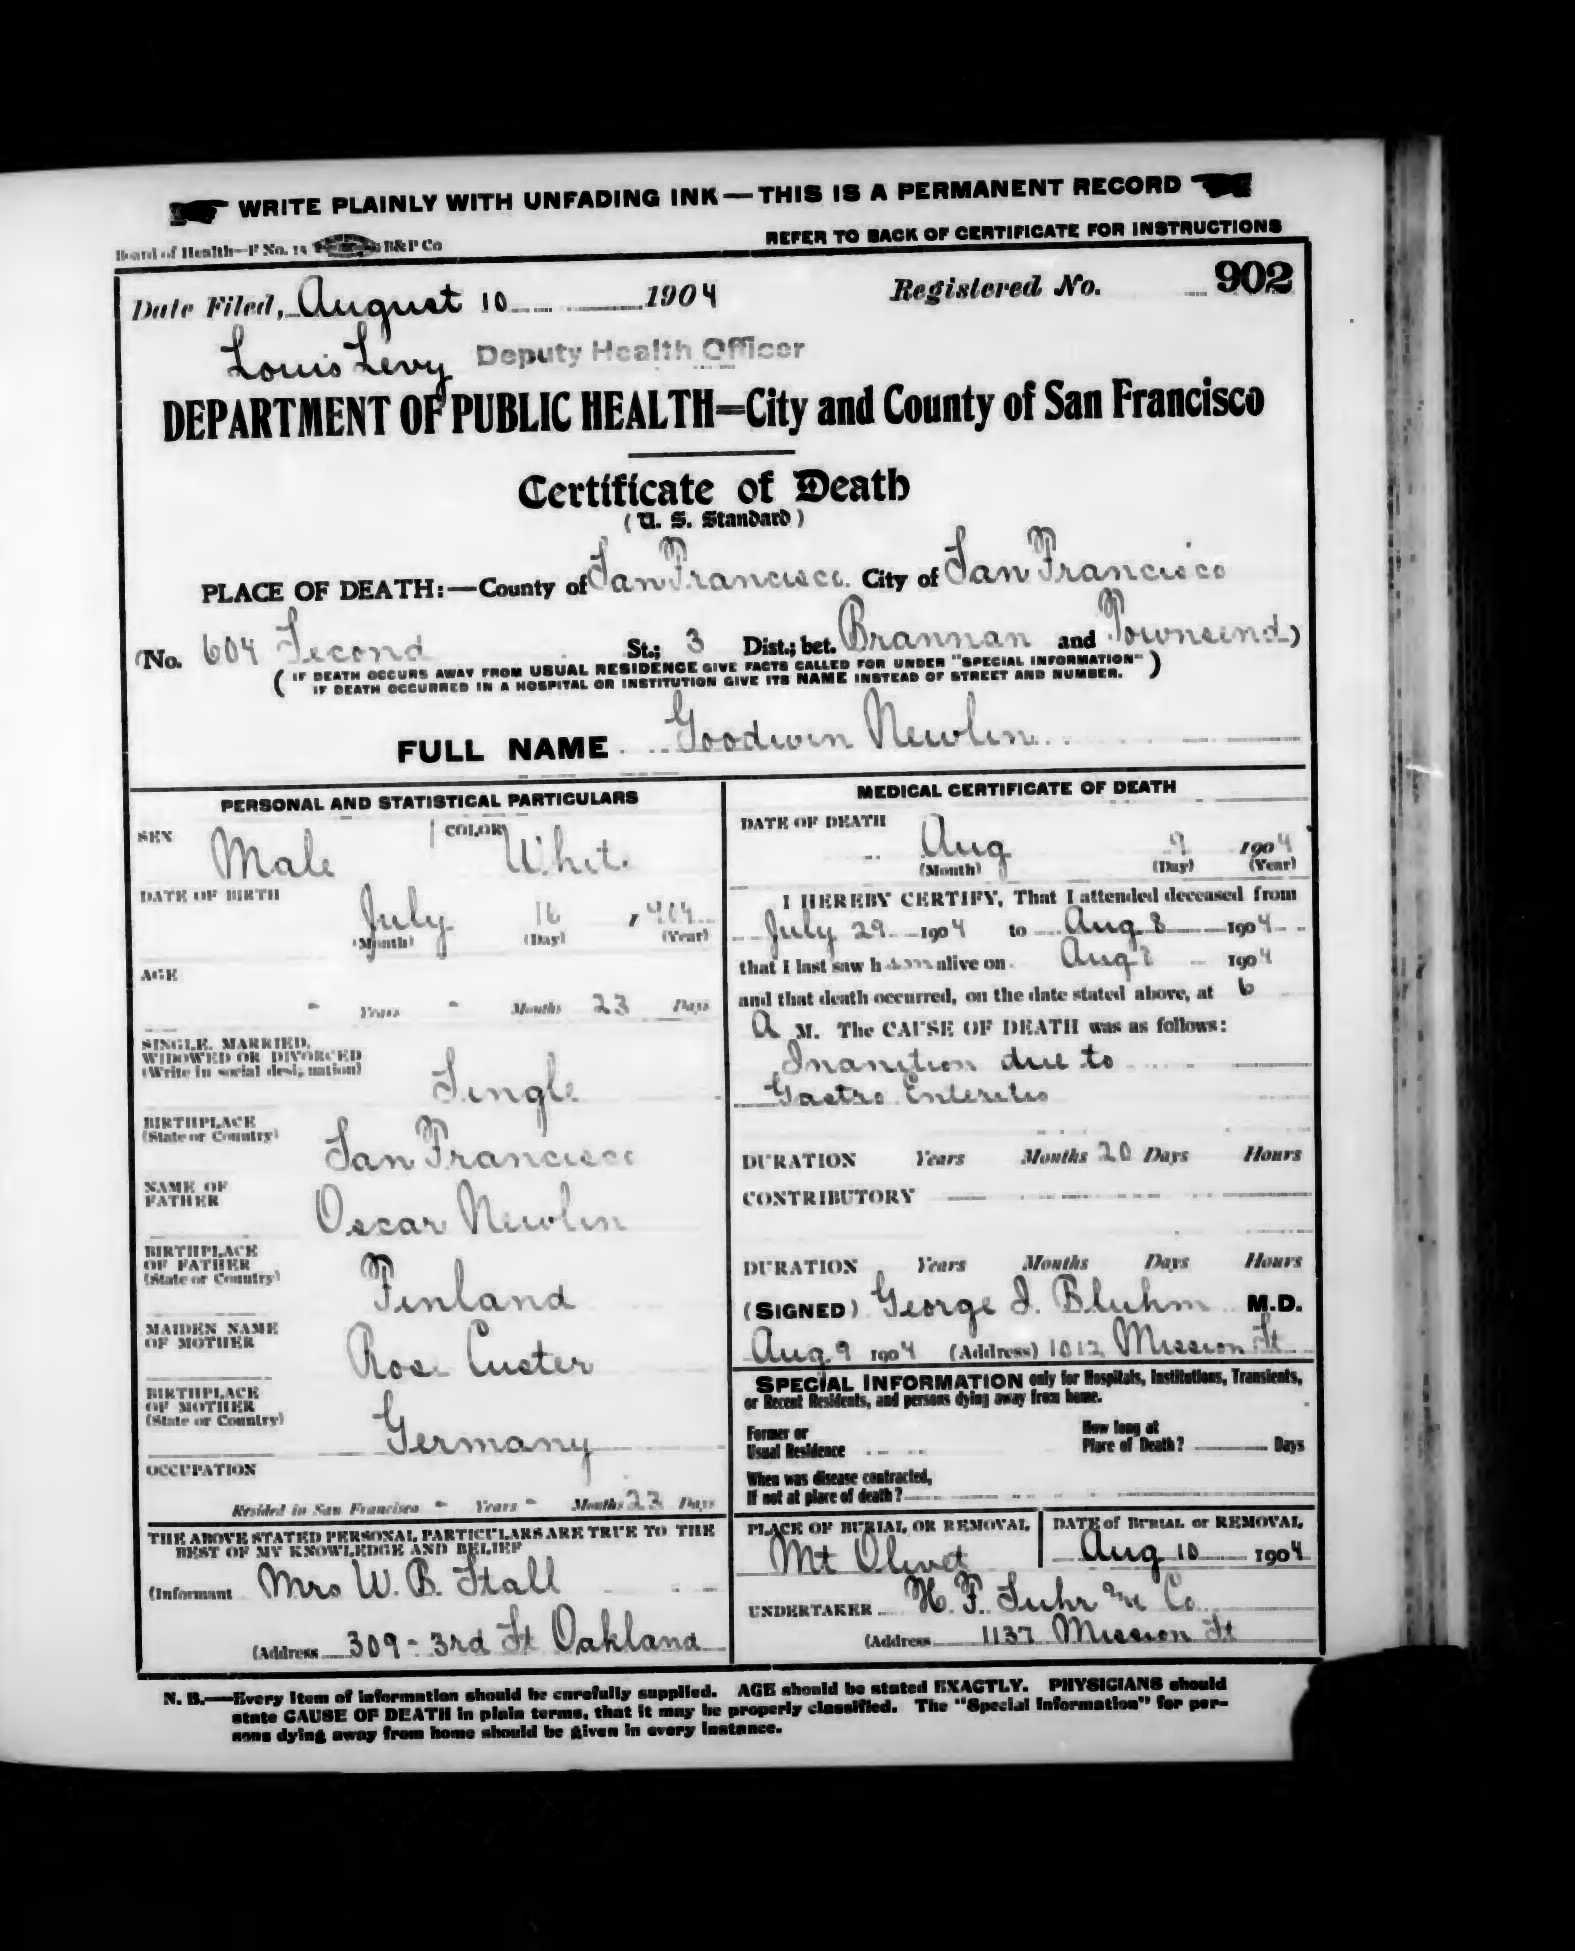 WRITE PLAINLY WITH UNFADING INK—THIS IS A PERMANENT RECORD
Board of Health—F No. 15 B&P Co
REFER TO BACK OF CERTIFICATE FOR INSTRUCTIONS
Date Filed, August 10 1904 Registered No. 902
Louis Levy Deputy Health Officer
DEPARTMENT OF PUBLIC HEALTH=City and County of San Francisco
Certificate of Death
(U. S. Standard)
PLACE OF DEATH:—County of San Francisco City of San Francisco
(No. 604 Second St.; 3 Dist.; bet. Brannan and Townsend)
(IF DEATH OCCURS AWAY FROM USUAL RESIDENCE GIVE FACTS CALLED FOR UNDER "SPECIAL INFORMATION"
IF DEATH OCCURRED IN A HOSPITAL OR INSTITUTION GIVE ITS NAME INSTEAD OF STREET AND NUMBER.)
FULL NAME Goodwin Newlin
PERSONAL AND STATISTICAL PARTICULARS
SEX Male COLOR White
DATE OF BIRTH
July 16, 1904
(Month) (Day) (Year)
AGE
- Years - Months 23 Days
SINGLE, MARRIED,
WIDOWED OR DIVORCED
(Write in social designation)
Single
BIRTHPLACE
(State or Country)
San Francisco
NAME OF
FATHER
Oscar Newlin
BIRTHPLACE
OF FATHER
(State or Country)
Finland
MAIDEN NAME
OF MOTHER
Rose Custer
BIRTHPLACE
OF MOTHER
(State or Country)
Germany
OCCUPATION
Resided in San Francisco - Years - Months 23 Days
THE ABOVE STATED PERSONAL PARTICULARS ARE TRUE TO THE
BEST OF MY KNOWLEDGE AND BELIEF
(Informant Mrs W. B. Stall
(Address 309 - 3rd St Oakland
MEDICAL CERTIFICATE OF DEATH
DATE OF DEATH
Aug 9 1904
(Month) (Day) (Year)
I HEREBY CERTIFY, That I attended deceased from
July 29 1904 to Aug 8 1904
that I last saw him alive on Aug 8 1904
and that death occurred, on the date stated above, at 6
A M. The CAUSE OF DEATH was as follows:
Inanition due to
Gastro Enteritis
DURATION Years Months 20 Days Hours
CONTRIBUTORY
DURATION Years Months Days Hours
(SIGNED) George J. Bluhm M.D.
Aug 9 1904 (Address) 1012 Mission St
SPECIAL INFORMATION only for Hospitals, Institutions, Transients,
or Recent Residents, and persons dying away from home.
Former or
Usual Residence
How long at
Place of Death? Days
When was disease contracted,
If not at place of death?
PLACE OF BURIAL OR REMOVAL
Mt Olivet
DATE of BURIAL or REMOVAL
Aug 10 1904
UNDERTAKER H. F. Suhr & Co
(Address 1137 Mission St
N. B.—Every item of information should be carefully supplied. AGE should be stated EXACTLY. PHYSICIANS should
state CAUSE OF DEATH in plain terms, that it may be properly classified. The "Special Information" for per-
sons dying away from home should be given in every instance.